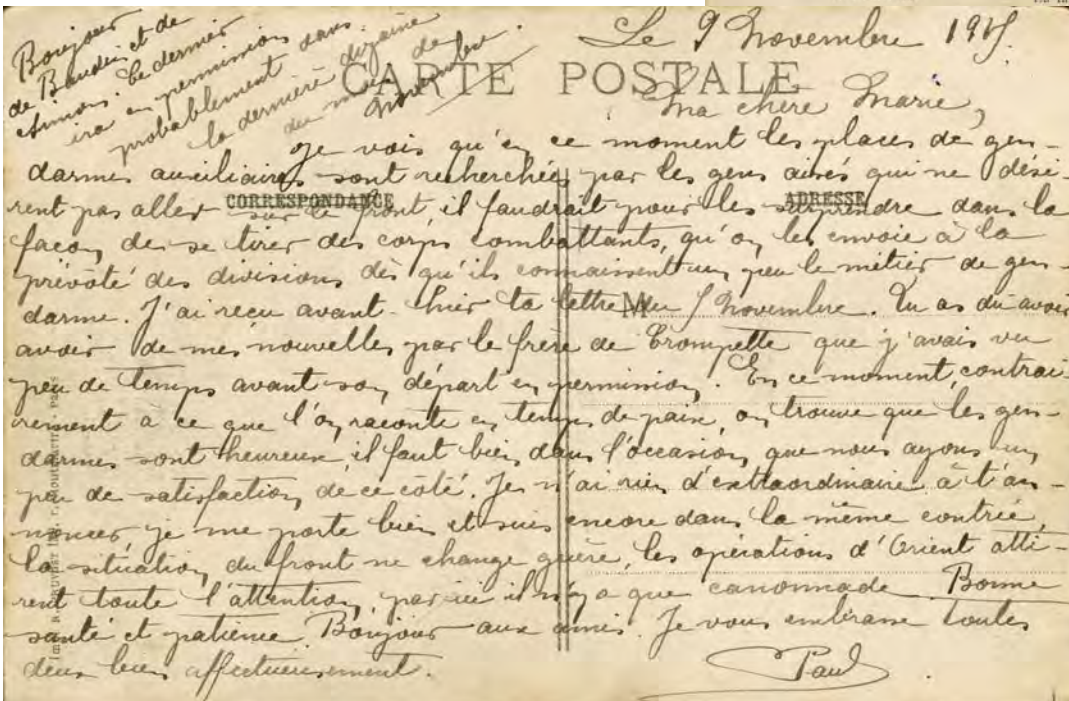 Bonjour
de Baudin et de
Simon. Ce dernier
ira en permission dans
probablement
la dernière dizaine
du mois de
Novembre.
Le 9 Novembre 1915.
CARTE POSTALE
Ma chère Marie,
Je vois qu'en ce moment les places de gen-
darmes auxiliaires sont recherchées par les gens aisés qui ne dési-
CORRESPONDANCE
ADRESSE
rent pas aller sur le front, il faudrait pour les surprendre dans la
façon de se tirer des corps combattants, qu'on les envoie à la
prévôté des divisions dès qu'ils connaissent un peu le métier de gen-
darme. J'ai reçu avant-hier ta lettre du 5 Novembre. Tu as dû avoir
M
avoir de mes nouvelles par le frère de Trompette que j'avais vu
peu de temps avant son départ en permission. En ce moment, contrai-
rement à ce que l'on raconte en temps de paix, on trouve que les gen-
darmes sont heureux, il faut bien dans l'occasion que nous ayons un
peu de satisfaction de ce côté. Je n'ai rien d'extraordinaire à t'an-
noncer, je me porte bien et suis encore dans la même contrée,
la situation du front ne change guère, les opérations d'Orient atti-
rent toute l'attention, par ici il n'y a que canonnade. Bonne
santé et patience. Bonjour aux amis. Je vous embrasse toutes
deux bien affectueusement.
Paul